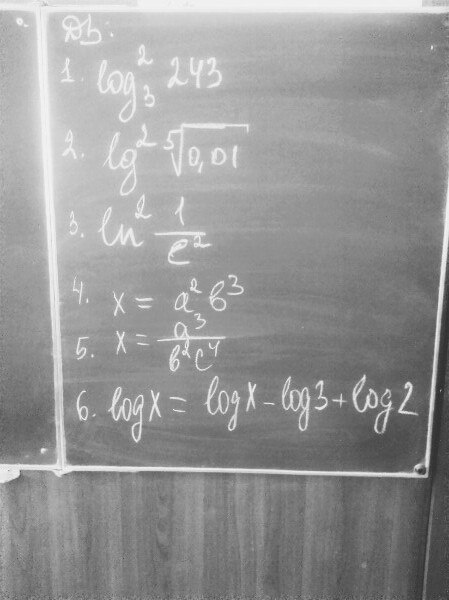 Дз:
1. log₃² 243
2. lg² ⁵√0,01
3. ln² 1/e²
4. x = a²b³
5. x = a³/b²c⁴
6. logx = logx - log3 + log2